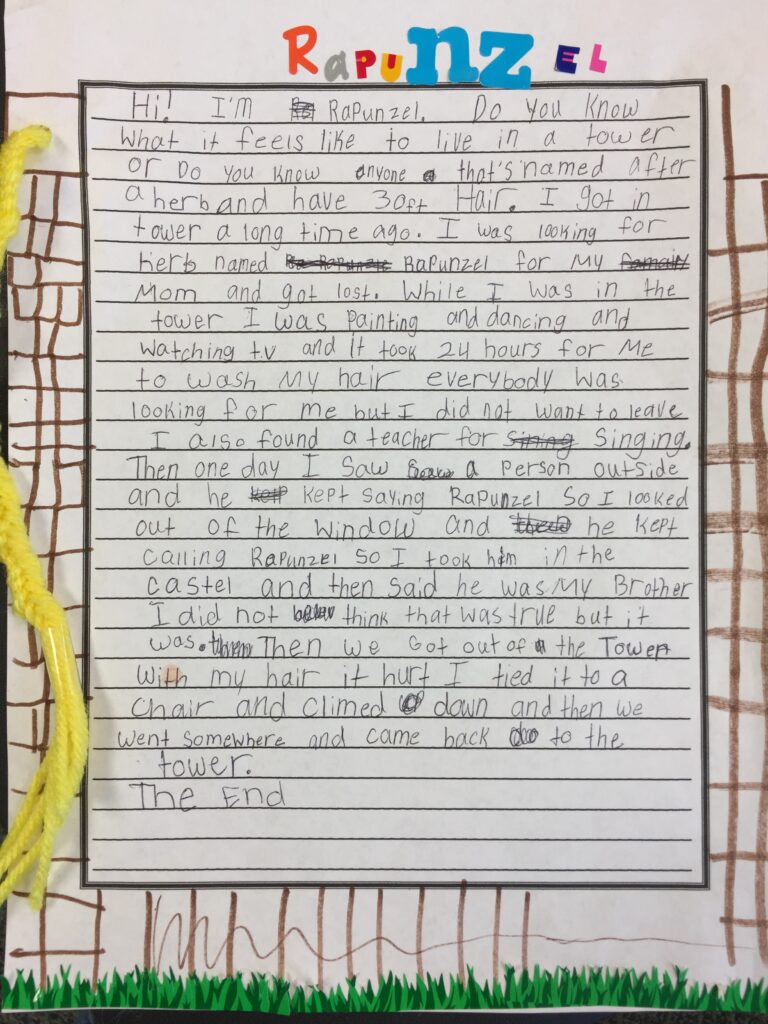 RapuNZEL
Hi! I'M RaPunzel. Do you know
what it feels like to live in a tower
or Do you know anyone that's named after
a herb and have 30ft Hair. I got in
tower a long time ago. I was looking for
herb named RaPunzel for my
Mom and got lost. While I was in the
tower I was painting and dancing and
watching t.v and it took 24 hours for me
to wash my hair everybody was
looking for me but I did not want to leave
I also found a teacher for Singing.
Then one day I saw a person outside
and he kept saying RaPunzel So I looked
out of the window and he kept
calling RaPunzel so I took him in the
castel and then said he was my Brother
I did not think that was true but it
was. Then we Got out of the Tower
with my hair it hurt I tied it to a
chair and climed down and then we
went somewhere and came back to the
tower.
The End